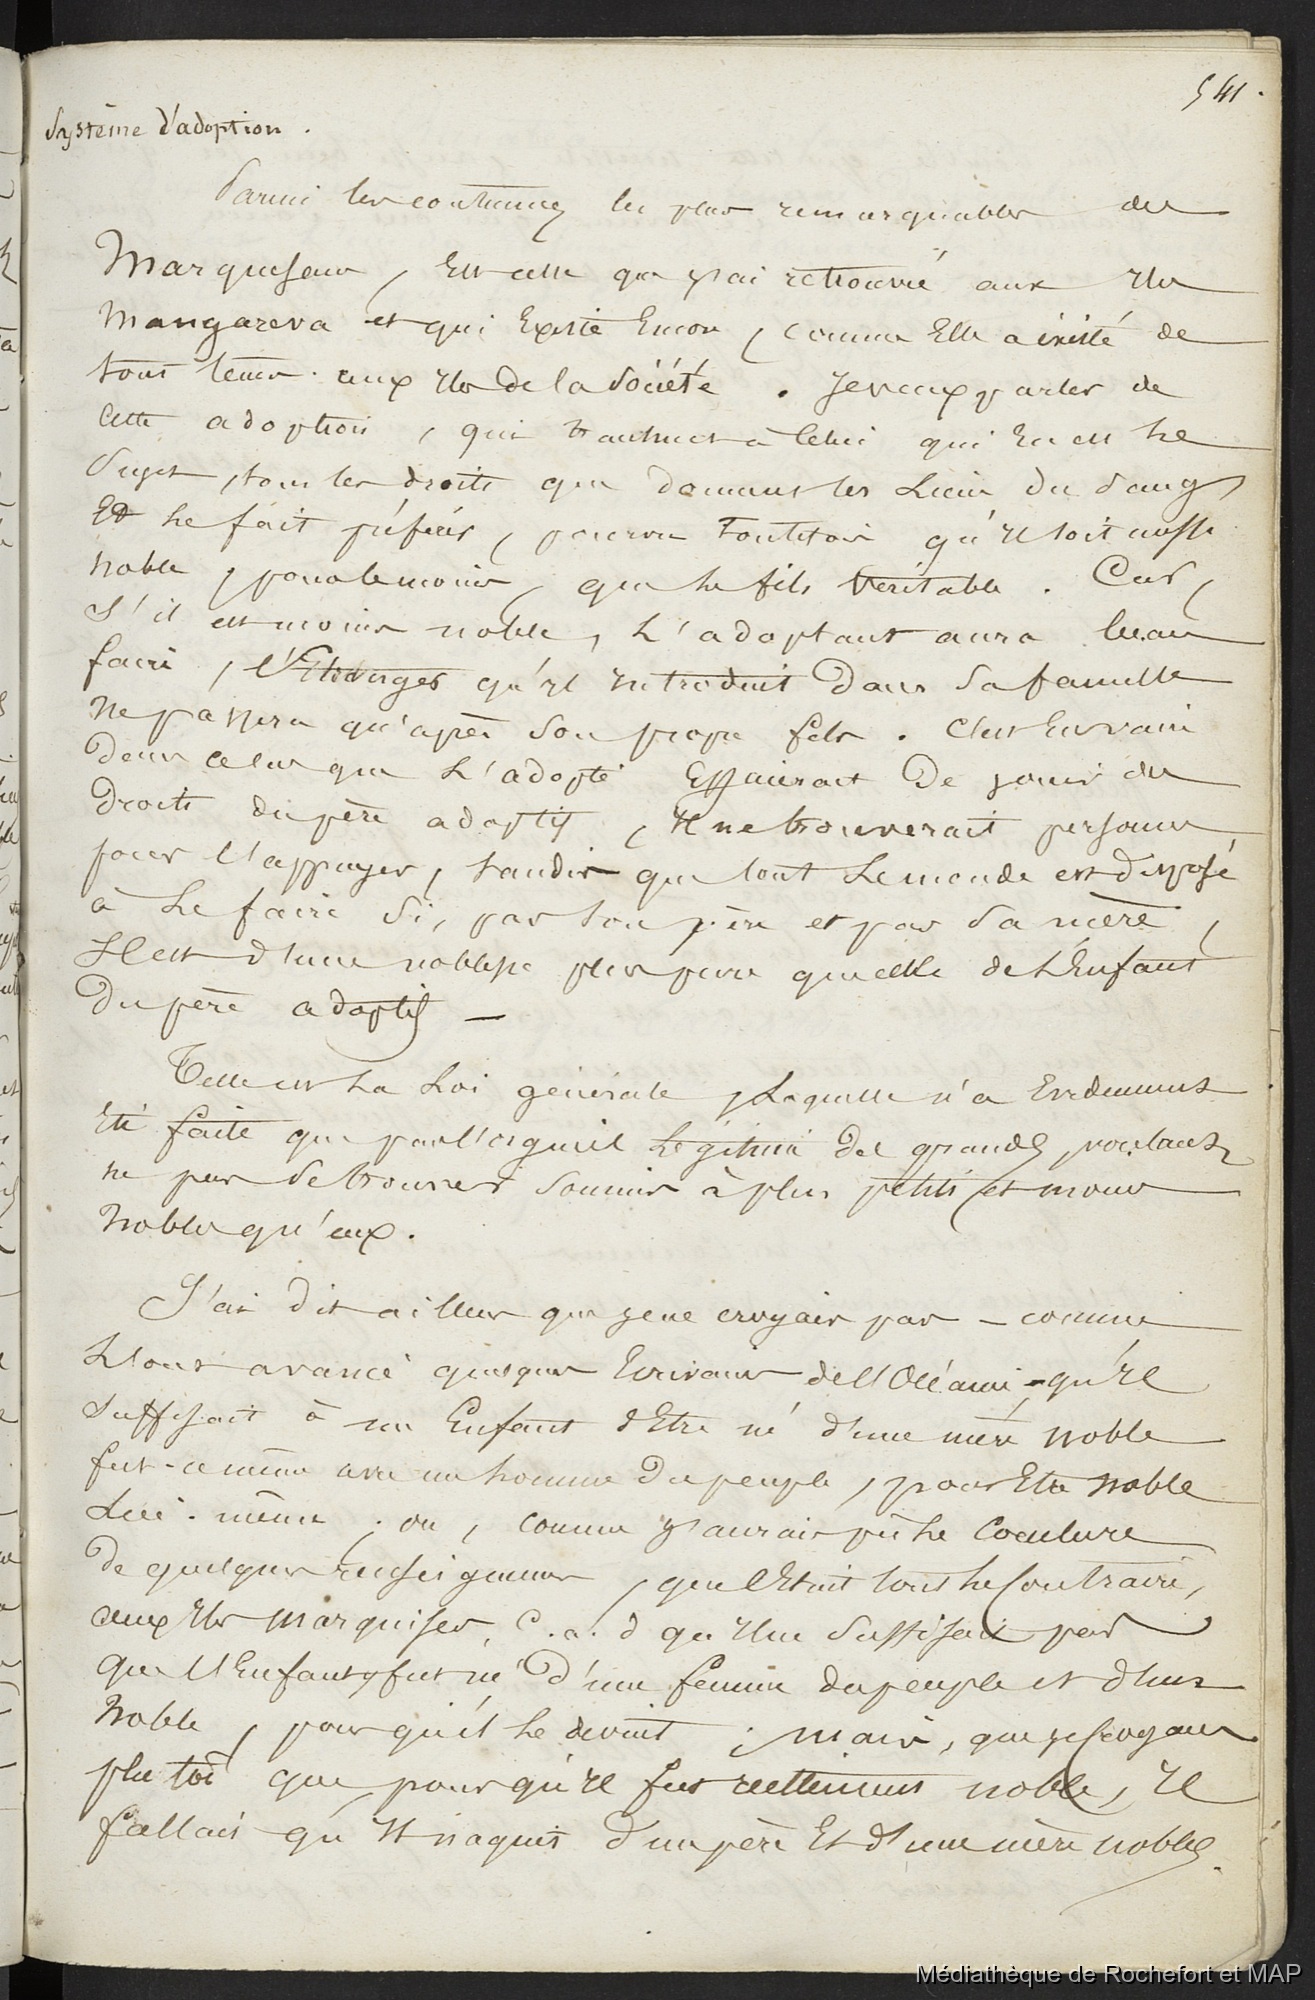 541.
Système d'adoption.
Parmi les coutumes les plus remarquables des
Marquesans, est celle que j'ai retrouvée aux Iles
Mangareva et qui Existe Encore, comme Elle a existé de
tous tems aux Iles de la Société. Je veux parler de
cette adoption, qui transmet à celui qui En est le
Sujet, tous les droits que donnent les Liens du Sang
Et le fait préférer, pourvu toutefois qu'il soit aussi
noble, pour le moins, que le fils véritable. Car,
S'il est moins noble, L'adoptant aura beau
faire, l'Etranger qu'il introduit dans Sa famille
ne passera qu'après Son propre fils. C'est En vain
dans ce cas que L'adopté Essaierait De jouir des
Droits du père adoptif, Il ne trouverait personne
pour l'appuyer, tandis que tout Le monde est disposé
à Le faire Si, par Son père et par Sa mère,
Il est d'une noblesse plus pure que celle de L'Enfant
Du père adoptif —
Telle est La Loi générale, Laquelle n'a Evidemment
Eté faite que par l'orgueil Légitime des grands, voulant
ne pas Se trouver Soumis à plus petits et moins
Nobles qu'eux.
J'ai dit ailleurs que je ne croyais pas – comme
L'ont avancé quelques Ecrivains de l'Océanie – qu'il
Suffisait à un Enfant d'Etre né d'une mère noble
fut-ce même avec un homme Du peuple, pour Etre noble
Lui-même; ou, comme j'aurais pû Le Conclure
De quelques renseignemens, que c'Etait tout le Contraire,
aux Iles Marquises, C.a.d qu'il ne Suffisait pas
que l'Enfant y fut né d'une femme du peuple et d'un
Noble, pour qu'il Le devint; Mais, que je Croyais
plutôt que, pour qu'il fut réellement noble, Il
fallait qu'il naquit d'un père Et d'une mère nobles.
Médiathèque de Rochefort et MAP